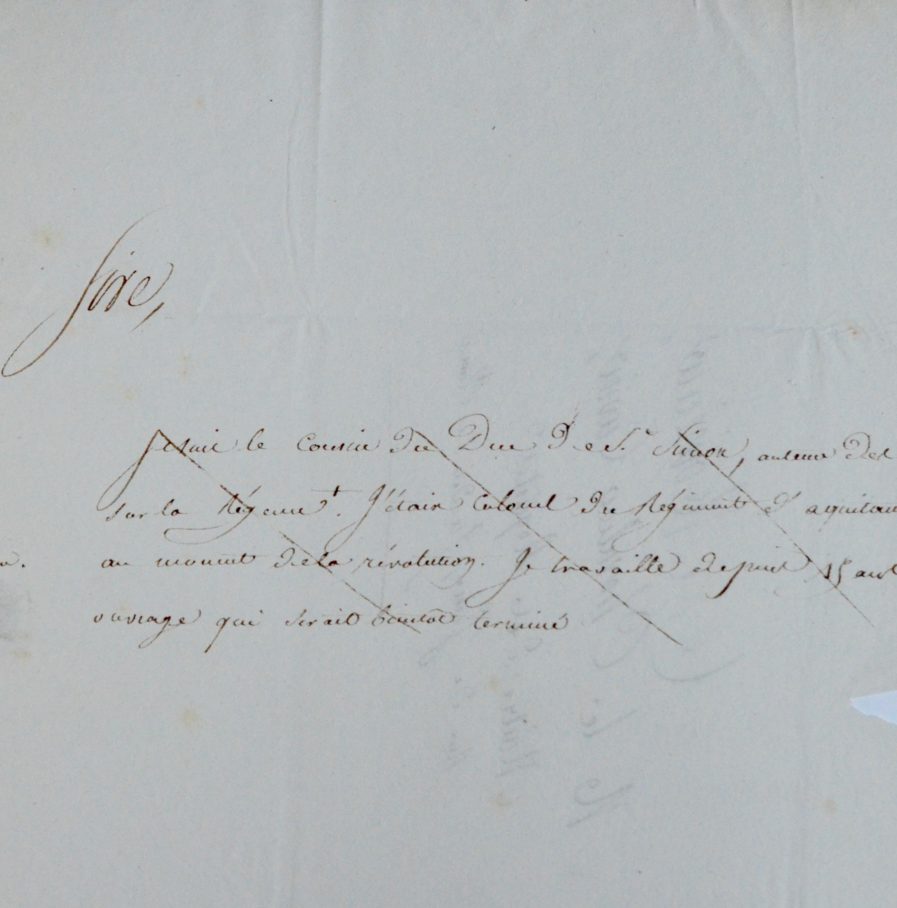 Sire,
Je suis le cousin du Duc De St. Simon, auteur des
sur la Régence. J'étais Colonel du Régiment d'aquitaine
au moment de la révolution. Je travaille depuis 15 ans
ouvrage qui serait bientot terminé